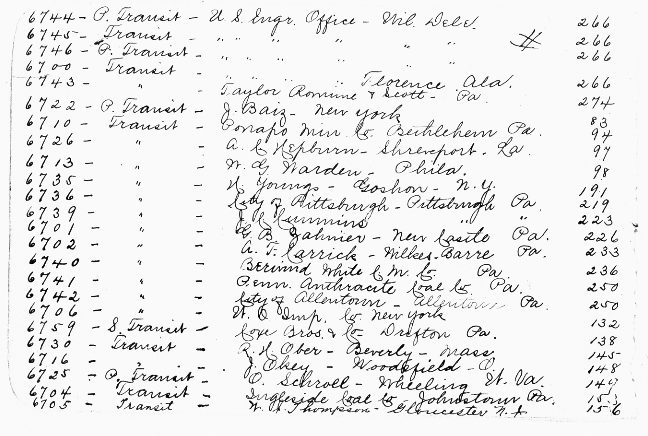 6744 - P. Transit - U.S. Engr. Office - Wil. Dele. 266
6745 - Transit - " " " " 266
6746 - P. Transit - " " " " 266
6700 - Transit -
6743 - " - " " " " Florence Ala. 266
Taylor Romine & Scott - Pa. 274
6722 - P. Transit - J. Baiz - New York 83
6710 - Transit - Ponapo Min. Co. Bethlehem Pa. 94
6726 - " - A. C. Hepburn - Shreveport - La. 97
6713 - " - W. G. Warden - Phila. 98
6735 - " - N. Youngs - Goshon - N.Y. 191
6736 - " - City of Pittsburgh - Pittsburgh Pa. 219
6739 - " - Cummins " " 223
6701 - " - G. B. Zahnier - New Castle Pa. 226
6702 - " - A. T. Carrick - Wilkes-Barre Pa. 233
6740 - " - Berwind White C. M. Co. Pa. 236
6741 - " - Penn. Anthracite Coal Co. Pa. 250
6742 - " - City of Allentown - Allentown Pa. 250
6706 - " - W. C. Imp. Co. New York
6759 - S. Transit - Coxe Bros. & Co. Drifton Pa. 132
6730 - Transit - R. H. Ober - Beverly - Mass. 138
6716 - " - J. Okey - Woodsfield - O. 145
6725 - P. Transit - O. Schroll - Wheeling W. Va. 148
6704 - Transit - Ingleside Coal Co. Johnstown Pa. 149
6705 - Transit - W. Thompson - Gloucester N.J. 156